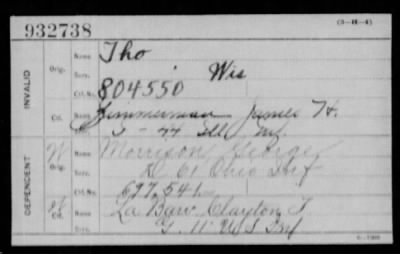 932738
(3-H-4)
INVALID
Orig.
Name Tho
Serv. Wis
Ctf. No. 804550
Ctf.
Name Zimmerman James H.
Serv. 44 Ill Inf
DEPENDENT
W Orig.
Name Morrison George
Serv. D. 61 Ohio Inf
Ctf. No. 627.54
Ctf.
Name La Barr Clayton T
Serv. G. 11 U S Inf